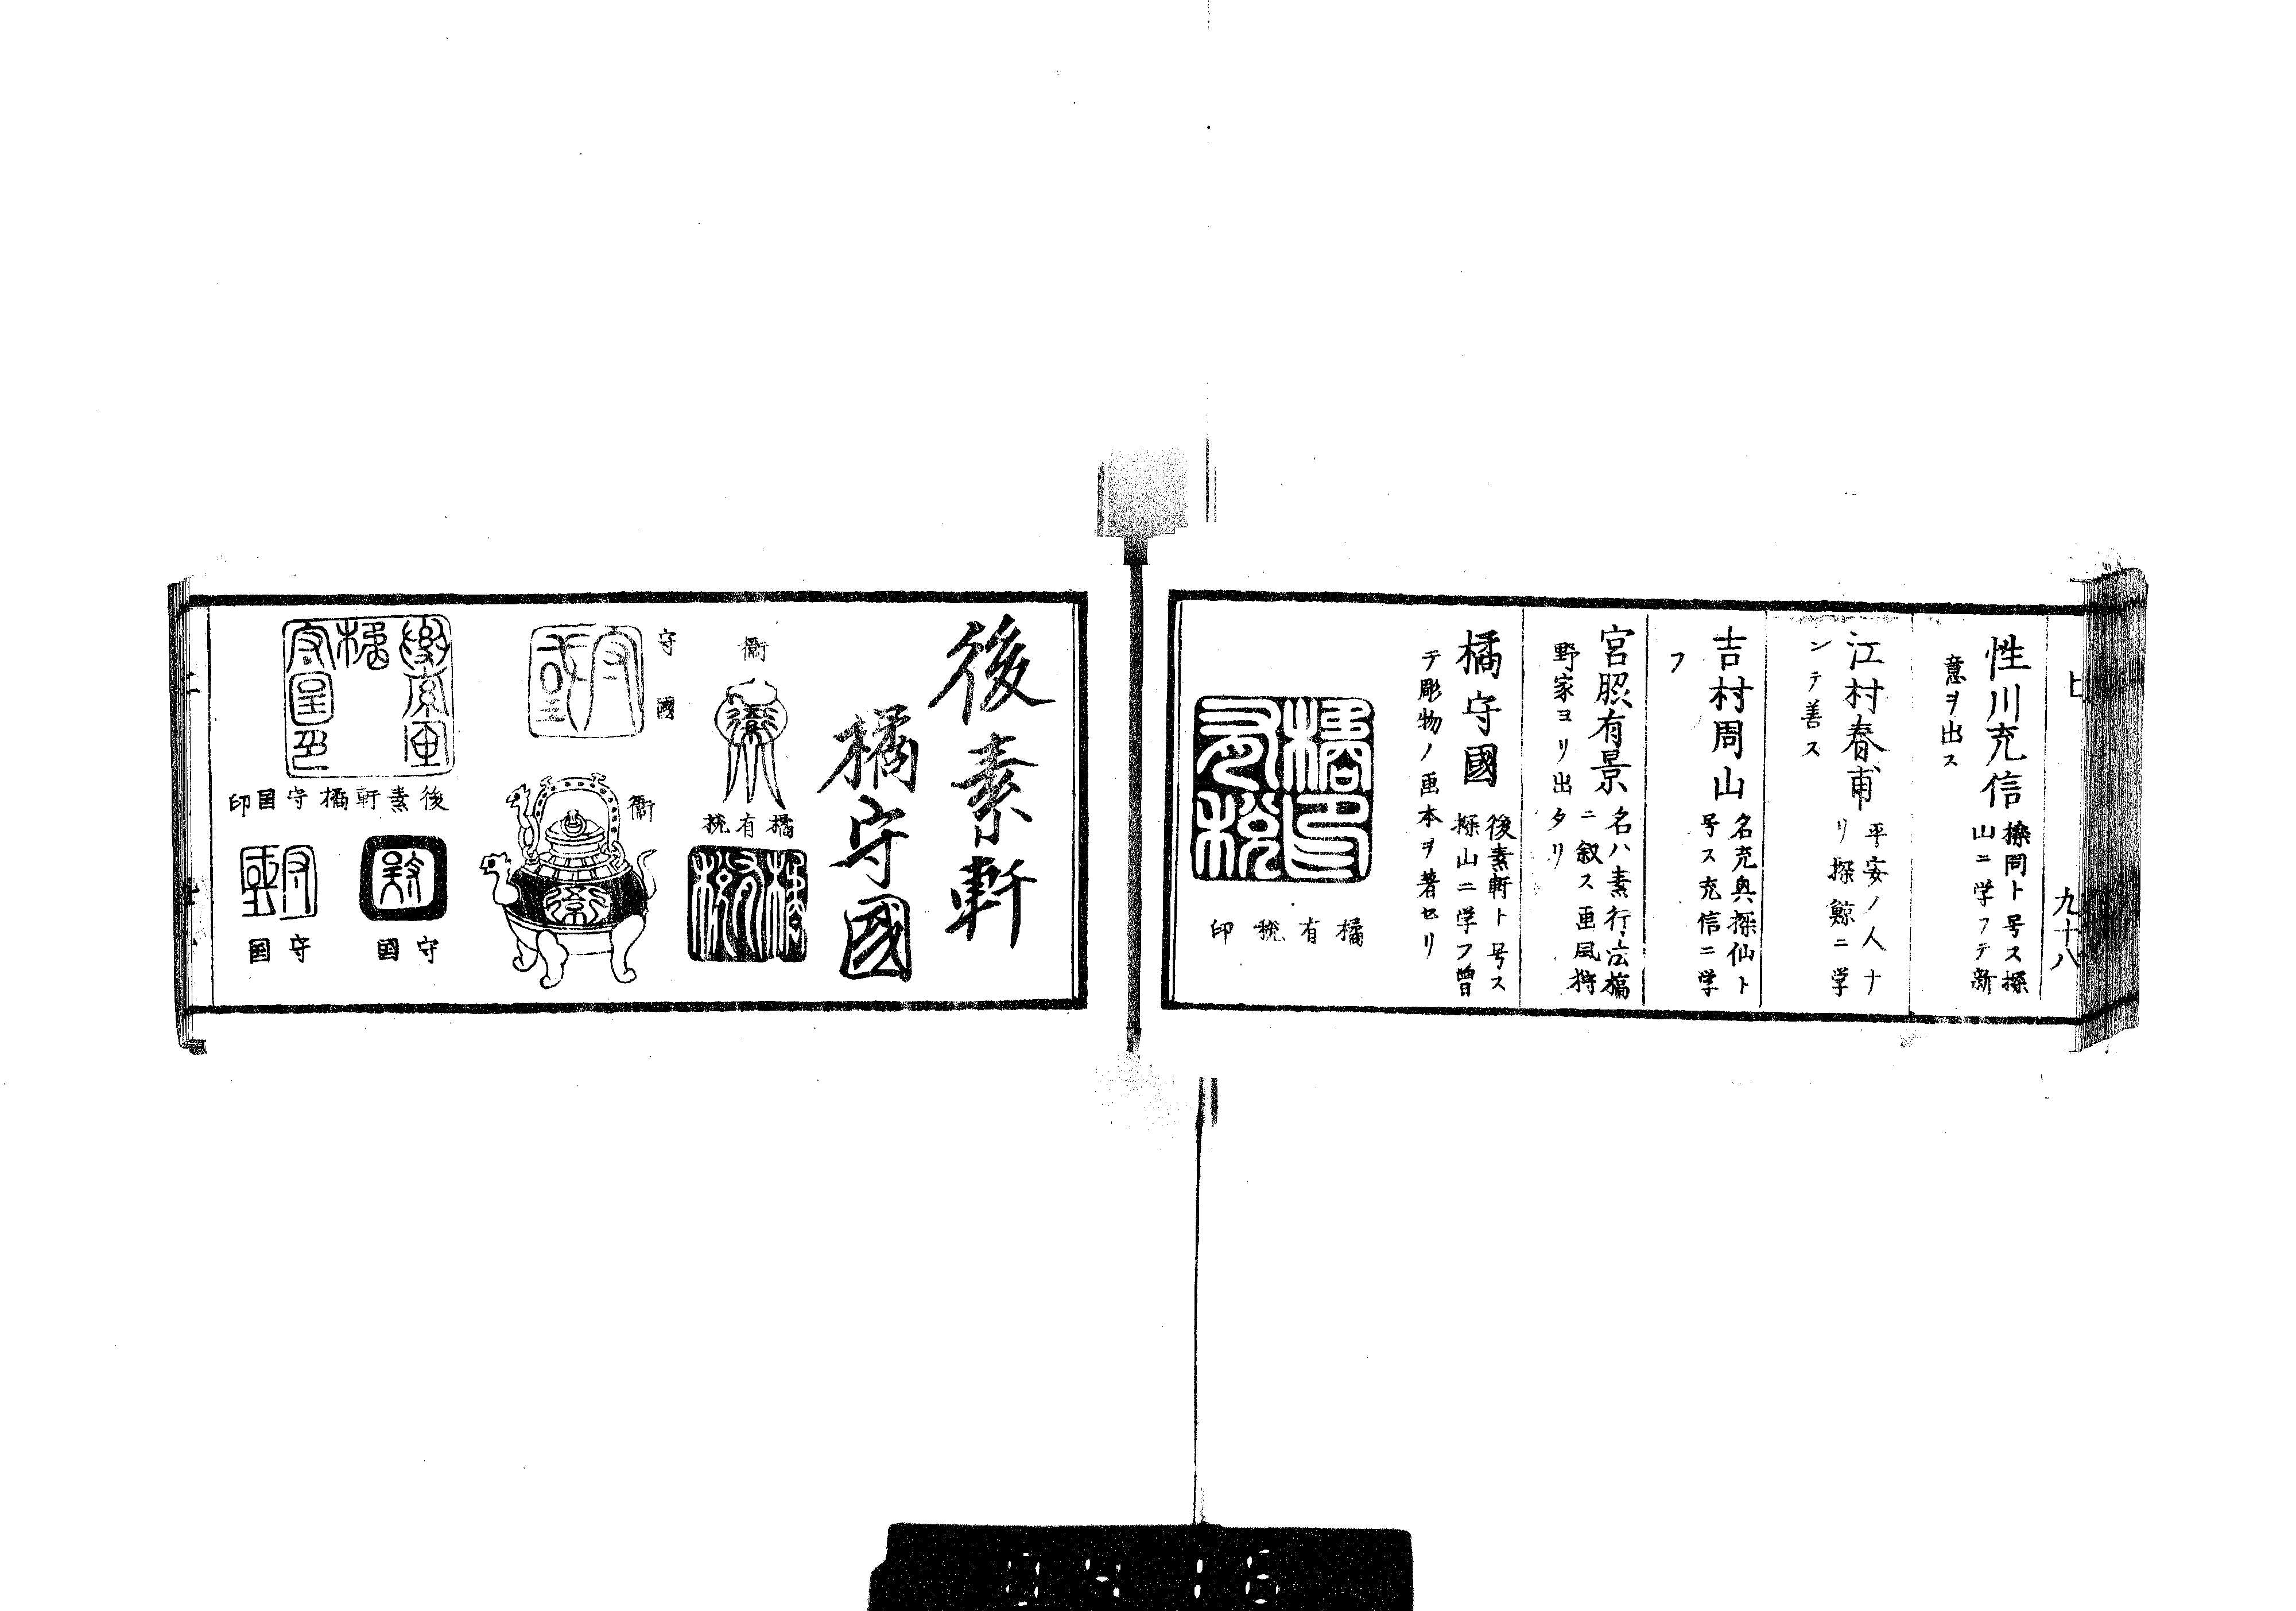 九十八
性川充信
探同ト号ス探
山ニ学フテ新
意ヲ出ス
江村春甫
平安ノ人ナ
リ探鯨ニ学
ンテ善ス
吉村周山
名充興探仙ト
号ス充信ニ学
フ
宮脇有景
名ハ素行
ニ叙ス画風狩
野家ヨリ出タリ
橘守國
後素軒ト号ス
探山ニ学フ曽
テ彫物ノ画本ヲ著セリ
橘有税印
後素軒
橘守國
衛
橘有税
守國
衛
後素軒橘守国印
守國
守国
0416